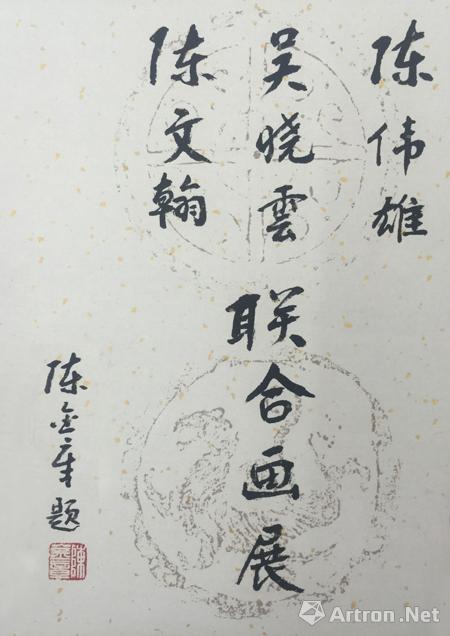 陈伟雄
吴晓雲
陈文翰
联合画展
陈金章题
陳金章
Artron.Net